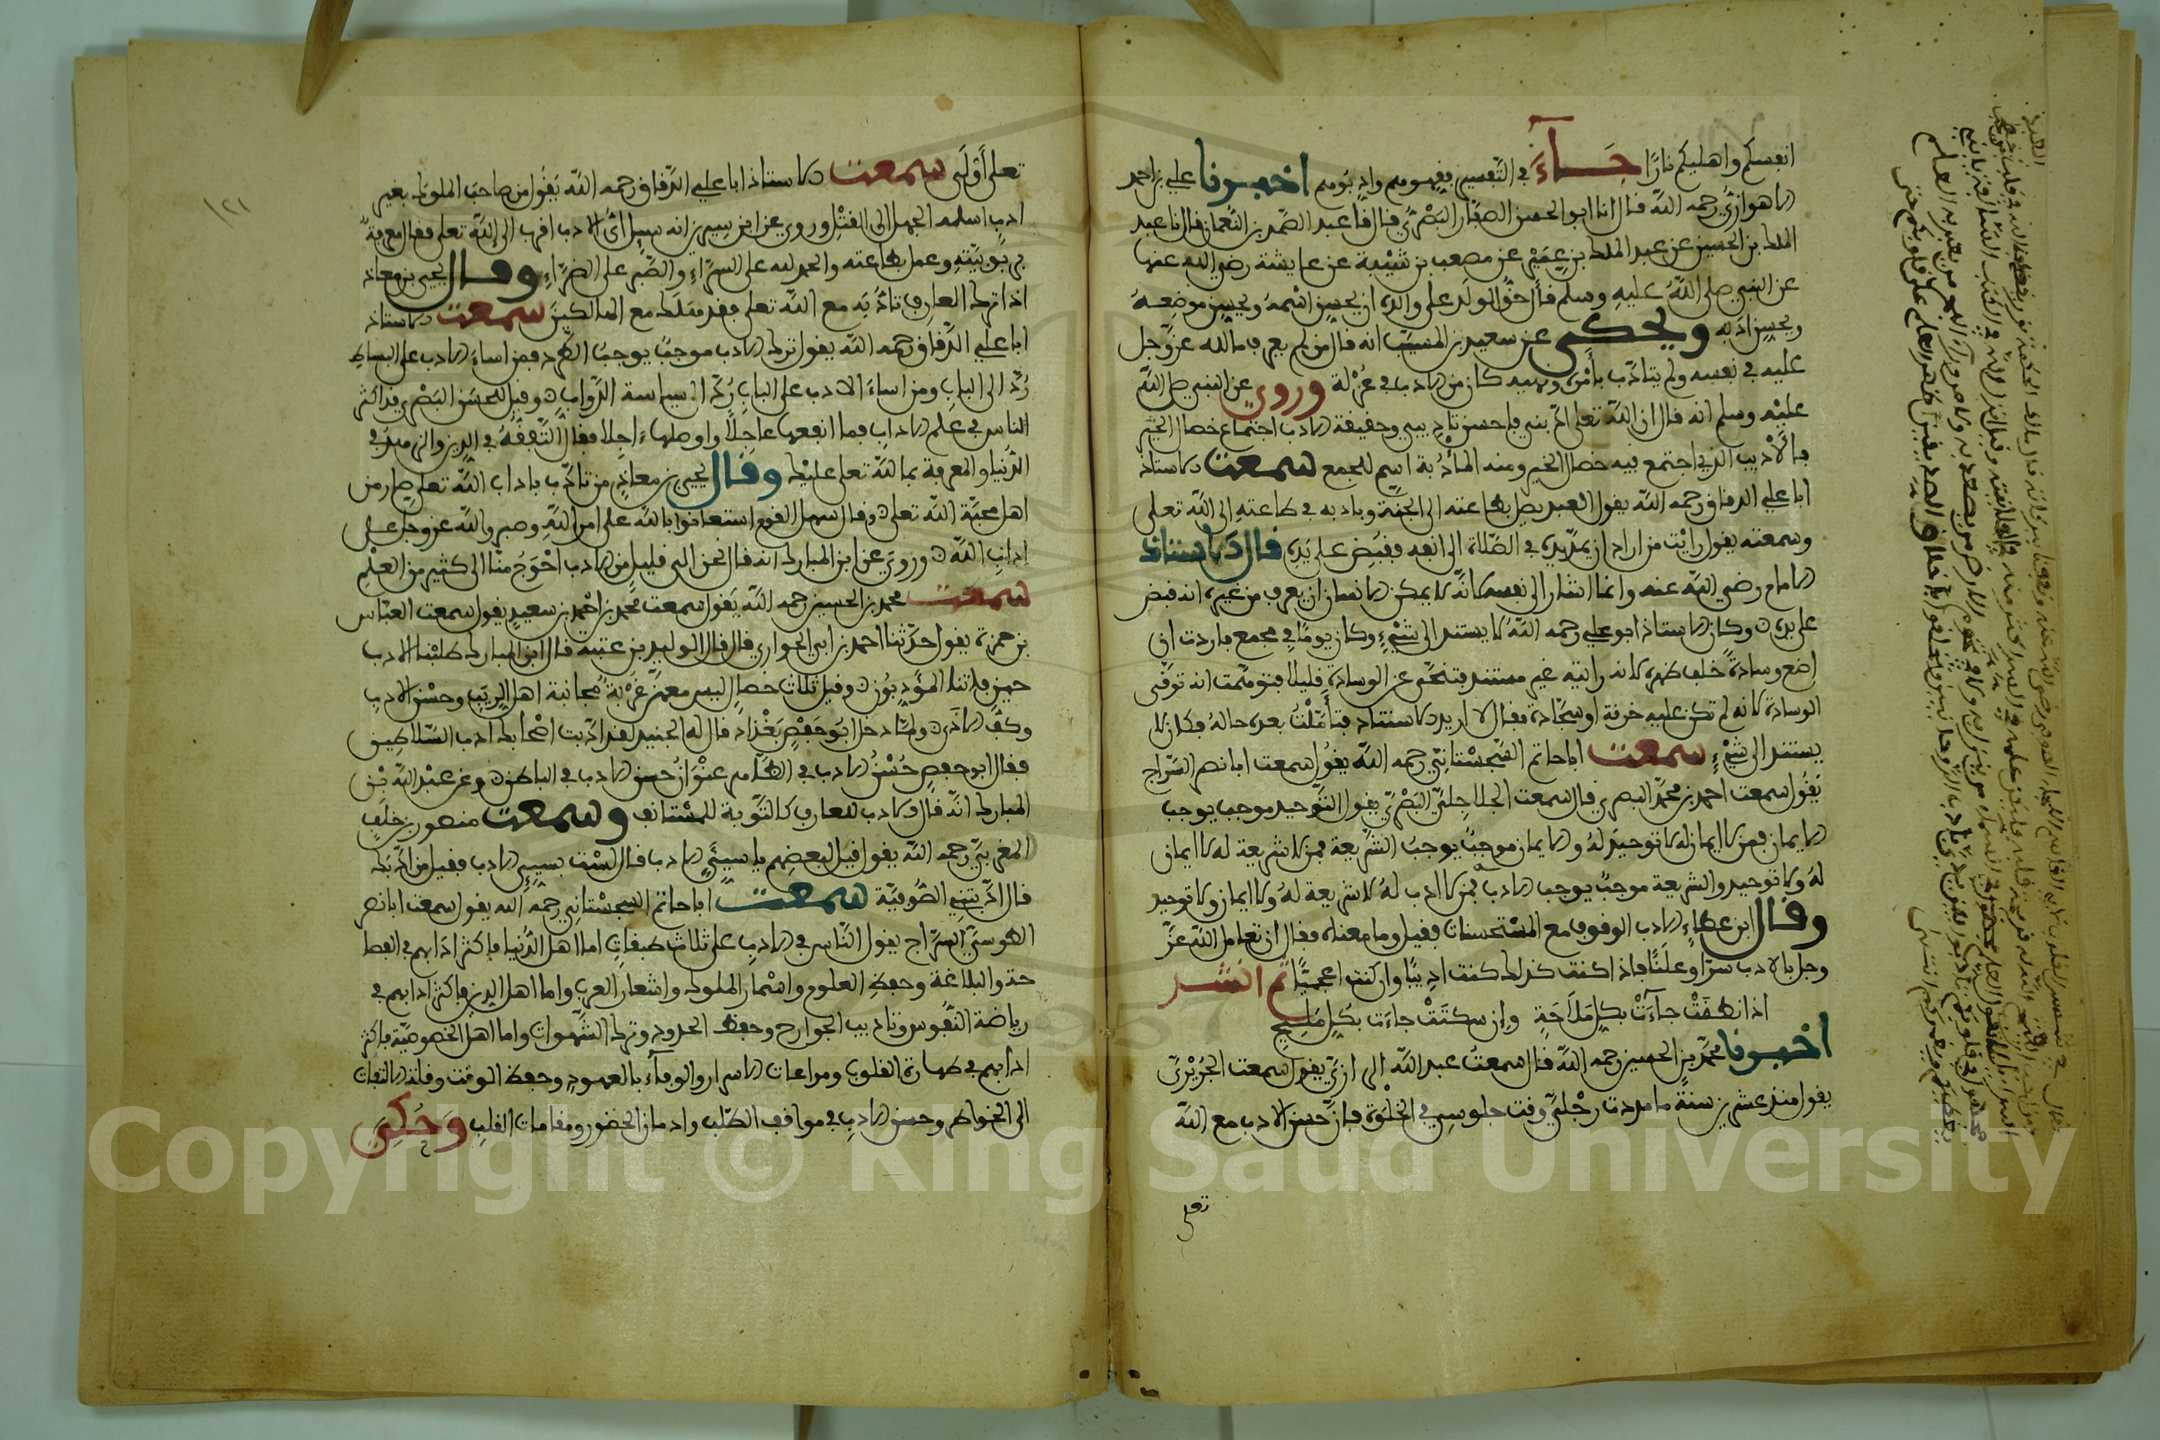 انفسكم واهليكم نارا جاء في التفسير فقهوهم وادبوهم اخبرنا علي بن احمد
الاهوازي رحمه الله قال انا ابو الحسن الصفار البصري قال نا عبد الصمد بن النعمان قال نا عبد
الملك بن الحسين عن عبد الملك بن عمير عن مصعب بن شيبة عن عايشة رضي الله عنها
عن النبي صلى الله عليه وسلم قال حق الولد على والده ان يحسن اسمه ويحسن موضعه
ويحسن ادبه ويحكى عن سعيد بن المسيب انه قال من لم يعرف ما لله عز وجل
عليه في نفسه ولم يتادب بامره ونهيه كان من الادب في عزلة وروي عن النبي صلى الله
عليه وسلم انه قال ان الله تعلى ادبني فاحسن تاديبي وحقيقة الادب اجتماع خصال الخير
فالاديب الذي اجتمع فيه خصال الخير ومنه المأدبة اسم للجمع سمعت الاستاذ
ابا علي الدقاق رحمه الله يقول العبد يصل بطاعته الى الجنة وبادبه في طاعته الى الله تعلى
وسمعته يقول رايت من اراد ان يمد يده في الصلاة الى انفه فقبض على يده قال الاستاذ
الامام رضي الله عنه وانما اشار الى نفسه لانه لا يمكن الانسان ان يعرف من غيره انه قبض
على يده وكان الاستاذ ابو علي رحمه الله لا يستند الى شيء وكان يوما في مجمع فاردت ان
اضع وسادة خلف ظهره لانه رايته غير مستند فتنحى عن الوسادة قليلا فتوهمت انه توقى
الوسادة لانه لم تكن عليه خرقة او سجادة فقال لا اريد الاستناد فتأملت بعده حاله فكان لا
يستند الى شيء سمعت ابا حاتم السجستاني رحمه الله يقول سمعت ابا نصر السراج
يقول سمعت احمد بن محمد البصري قال سمعت الجلاجلي البصري يقول التوحيد موجب يوجب
الايمان فمن لا ايمان له لا توحيد له والايمان موجب يوجب الشريعة فمن لا شريعة له لا ايمان
له ولا توحيد والشريعة موجب يوجب الادب فمن لا ادب له لا شريعة له ولا ايمان ولا توحيد
وقال ابن عطاء الادب الوقوف مع المستحسنات فقيل وما معناه فقال ان تعامل الله عز
وجل بالادب سرا وعلنا فاذا كنت كذلك كنت اديبا وان كنت اعجميا ثم انشد
اذا نطقت جاءت بكل ملاحة وان سكتت جاءت بكل مليح
اخبرنا محمد بن الحسين رحمه الله قال سمعت عبد الله الرازي يقول سمعت الجريري
يقول منذ عشرين سنة ما مددت رجلي وقت جلوسي في الخلوة فان حسن الادب مع الله
تعلى
تعلى أولى سمعت الاستاذ ابا علي الدقاق رحمه الله يقول من صاحب الملوك بغير
ادب اسلمه الجهل الى القتل وروي عن ابن سيرين انه سيل اي الادب اقرب الى الله تعلى فقال معرفة
بربوبيته وعمل بطاعته والحمد لله على السراء والصبر على الضراء وقال يحيى بن معاذ
اذا ترك العارف تادبه مع الله تعلى فقد هلك مع الهالكين سمعت الاستاذ
ابا علي الدقاق رحمه الله يقول ترك الادب موجب يوجب الطرد فمن اساء الادب على البساط
رد الى الباب ومن اساء الادب على الباب رد الى سياسة الدواب وقيل للحسن البصري قد اكثر
الناس في علم الاداب فما انفعها عاجلا واوصلها ءاجلا فقال التفقه في الدين والزهد في
الدنيا والمعرفة بما لله تعلى عليك وقال يحيى بن معاذ من تادب باداب الله تعلى صار من
اهل محبة الله تعلى وقال سهل القوم استعانوا بالله على امر الله وصبروا لله عز وجل على
اداب الله وروي عن ابن المبارك انه قال نحن الى قليل من الادب احوج منا الى كثير من العلم
سمعت محمد بن الحسين رحمه الله يقول سمعت محمد بن احمد بن سعيد يقول سمعت العباس
بن حمزة يقول حدثنا احمد بن ابي الحواري قال قال الوليد بن عتبة قال ابن المبارك طلبنا الادب
حين فاتنا المؤدبون وقيل ثلاث خصال ليس معهن غربة مجانبة اهل الريب وحسن الادب
وكف الاذى ولما دخل ابو حفص بغداد قال له الجنيد لقد ادبت اصحابك ادب السلاطين
فقال ابو حفص حسن الادب في الظاهر عنوان حسن الادب في الباطن وعن عبد الله بن
المبارك انه قال الادب للعارف كالتوبة للمستانف وسمعت منصور بن خلف
المغربي رحمه الله يقول قيل لبعضهم يا سيئ الادب فقال لست بسيئ الادب فقيل من ادبك
فقال ادبتني الصوفية سمعت ابا حاتم السجستاني رحمه الله يقول سمعت ابا نصر
الطوسي السراج يقول الناس في الادب على ثلاث طبقات اما اهل الدنيا فاكثر ادابهم في الفصا
حة والبلاغة وحفظ العلوم واسمار الملوك واشعار العرب واما اهل الدين فاكثر ادابهم في
رياضة النفوس وتاديب الجوارح وحفظ الحدود وترك الشهوات واما اهل الخصوصية فاكثر
ادابهم في طهارة القلوب ومراعات الاسرار والوفاء بالعهود وحفظ الوقت وقلة الالتفات
الى الخواطر وحسن الادب في مواقف الطلب واوقات الحضور ومقامات القلب وحكي
Copyright © King Saud University